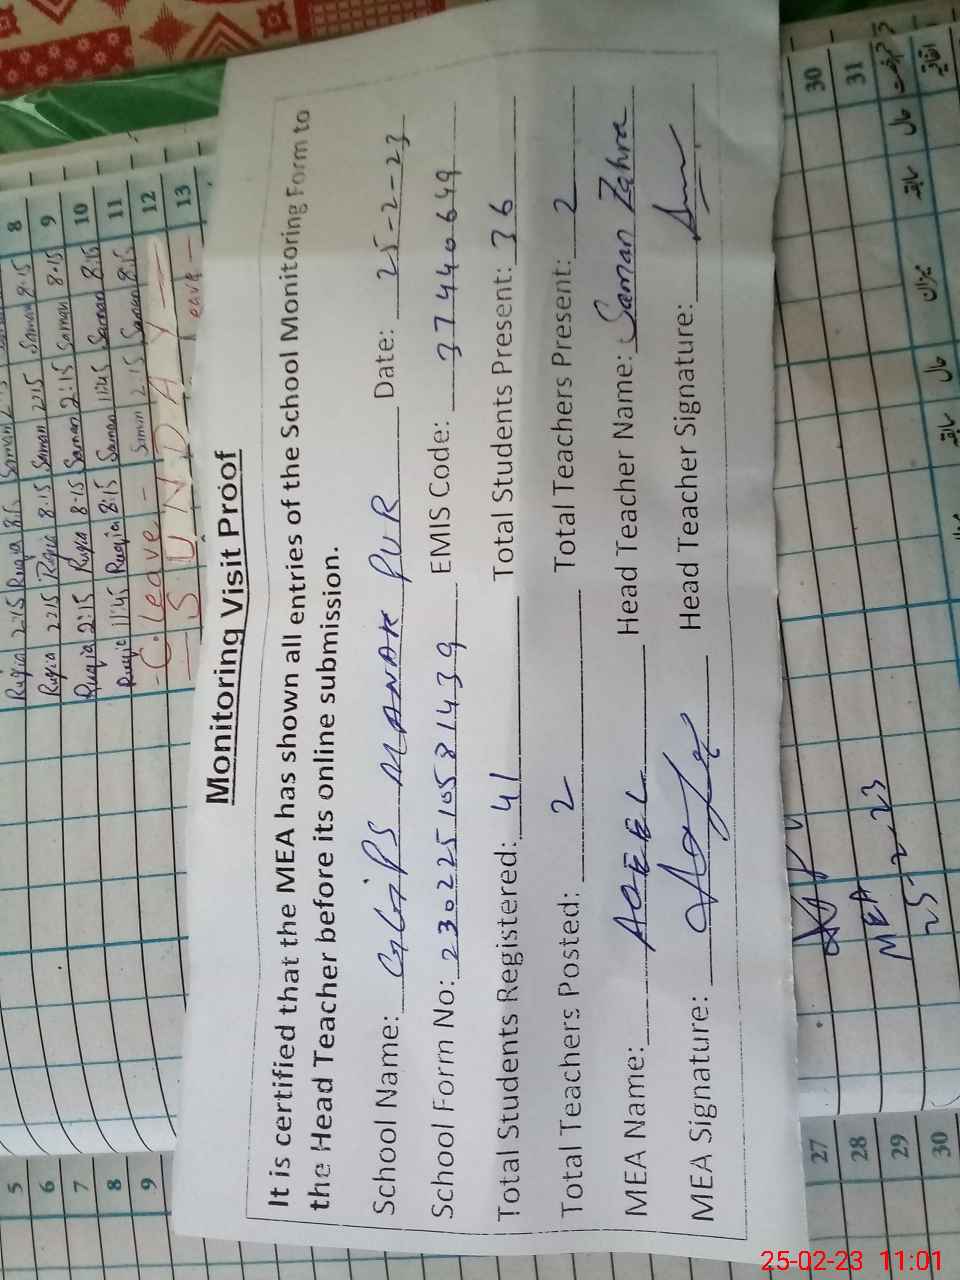 Monitoring Visit Proof
It is certified that the MEA has shown all entries of the School Monitoring Form to
the Head Teacher before its online submission.
School Name: GGPS MANAK PUR Date: 25-2-23
School Form No: 23022510581439 EMIS Code: 37440649
Total Students Registered: 41 Total Students Present: 36
Total Teachers Posted: 2 Total Teachers Present: 2
MEA Name: AQEEL Head Teacher Name: Saman Zahra
MEA Signature: Head Teacher Signature:
Ruqia 2:15 Ruqia 8:15 Saman 2:15 Saman 8:15 8
Ruqia 2:15 Ruqia 8:15 Saman 2:15 Saman 8:15 9
Ruqia 2:15 Ruqia 8:15 Saman 2:15 Saman 8:15 10
Ruqia 11:45 Ruqia 8:15 Saman 11:45 Saman 8:15 11
C.leave - Saman 2:15 Saman 8:15 12
SUNDAY 13
eave
5
6
7
8
9
27
28
29
30
30
31
MEA
25-2-23
سابقہ
حال
میزان
سابقہ
حال
25-02-23 11:01